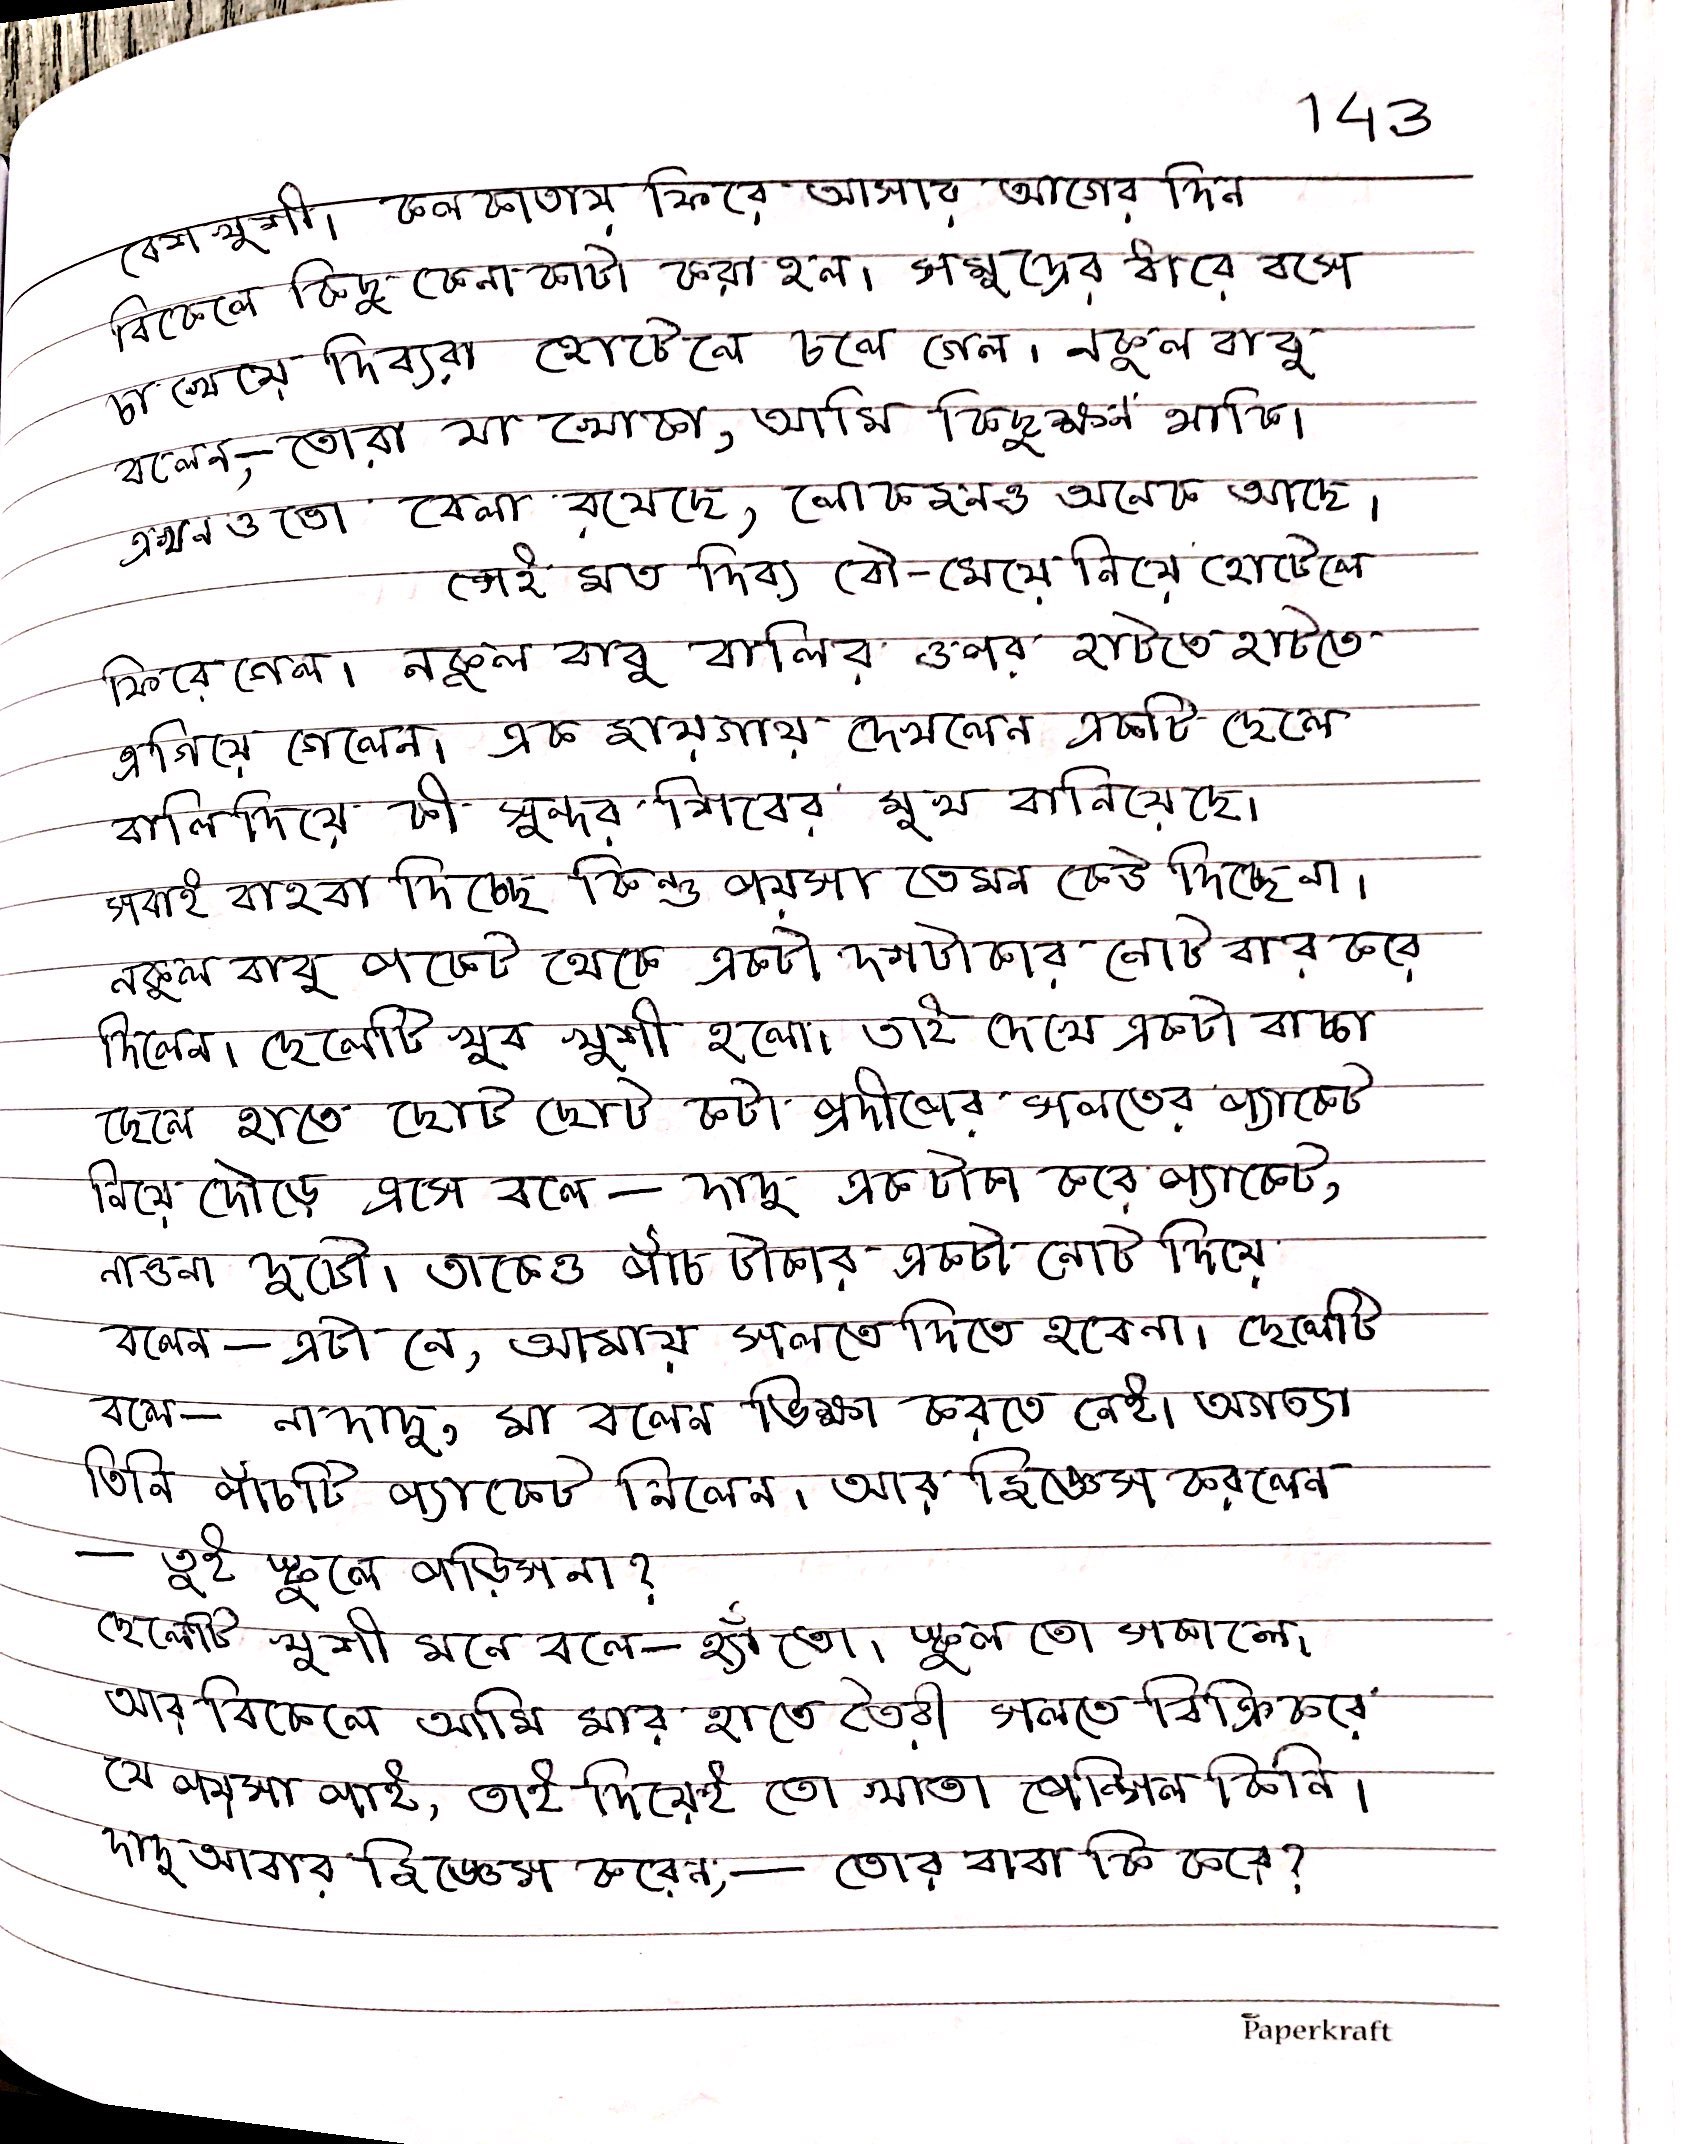 143
বেশ খুশী। কলকাতায় ফিরে আসার আগের দিন
বিকেলে কিছু কেনাকাটা করা হল। সমুদ্রের ধারে বসে
চা খেয়ে দিব্যরা হোটেলে চলে গেল। নকুল বাবু
বলেন,— তোরা যা খোকা, আমি কিছুক্ষন থাকি।
এখনও তো বেলা রয়েছে, লোকজনও অনেক আছে।
সেই মত দিব্য বৌ-মেয়ে নিয়ে হোটেলে
ফিরে গেল। নকুল বাবু বালির ওপর হাটতে হাটতে
এগিয়ে গেলেন। এক জায়গায় দেখলেন একটি ছেলে
বালি দিয়ে কী সুন্দর শিবের মুখ বানিয়েছে।
সবাই বাহবা দিচ্ছে কিন্তু পয়সা তেমন কেউ দিচ্ছে না।
নকুল বাবু পকেট থেকে একটা দশটাকার নোট বার করে
দিলেন। ছেলেটি খুব খুশী হলো। তাই দেখে একটা বাচ্চা
ছেলে হাতে ছোট ছোট কটা প্রদীপের সলতের প্যাকেট
নিয়ে দৌড়ে এসে বলে — দাদু একটাকা করে প্যাকেট,
নাওনা দুটো। তাকেও পাঁচ টাকার একটা নোট দিয়ে
বলেন — এটা নে, আমায় সলতে দিতে হবেনা। ছেলেটি
বলে — না দাদু, মা বলেন ভিক্ষা করতে নেই। অগত্যা
তিনি পাঁচটি প্যাকেট নিলেন। আর জিজ্ঞেস করলেন
— তুই স্কুলে পড়িস না?
ছেলেটি খুশী মনে বলে — হ্যাঁ তো। স্কুল তো সকালে।
আর বিকেলে আমি মার হাতে তৈরী সলতে বিক্রি করে
যে পয়সা পাই, তাই দিয়েই তো খাতা পেন্সিল কিনি।
দাদু আবার জিজ্ঞেস করেন,— তোর বাবা কি করে?
Paperkraft